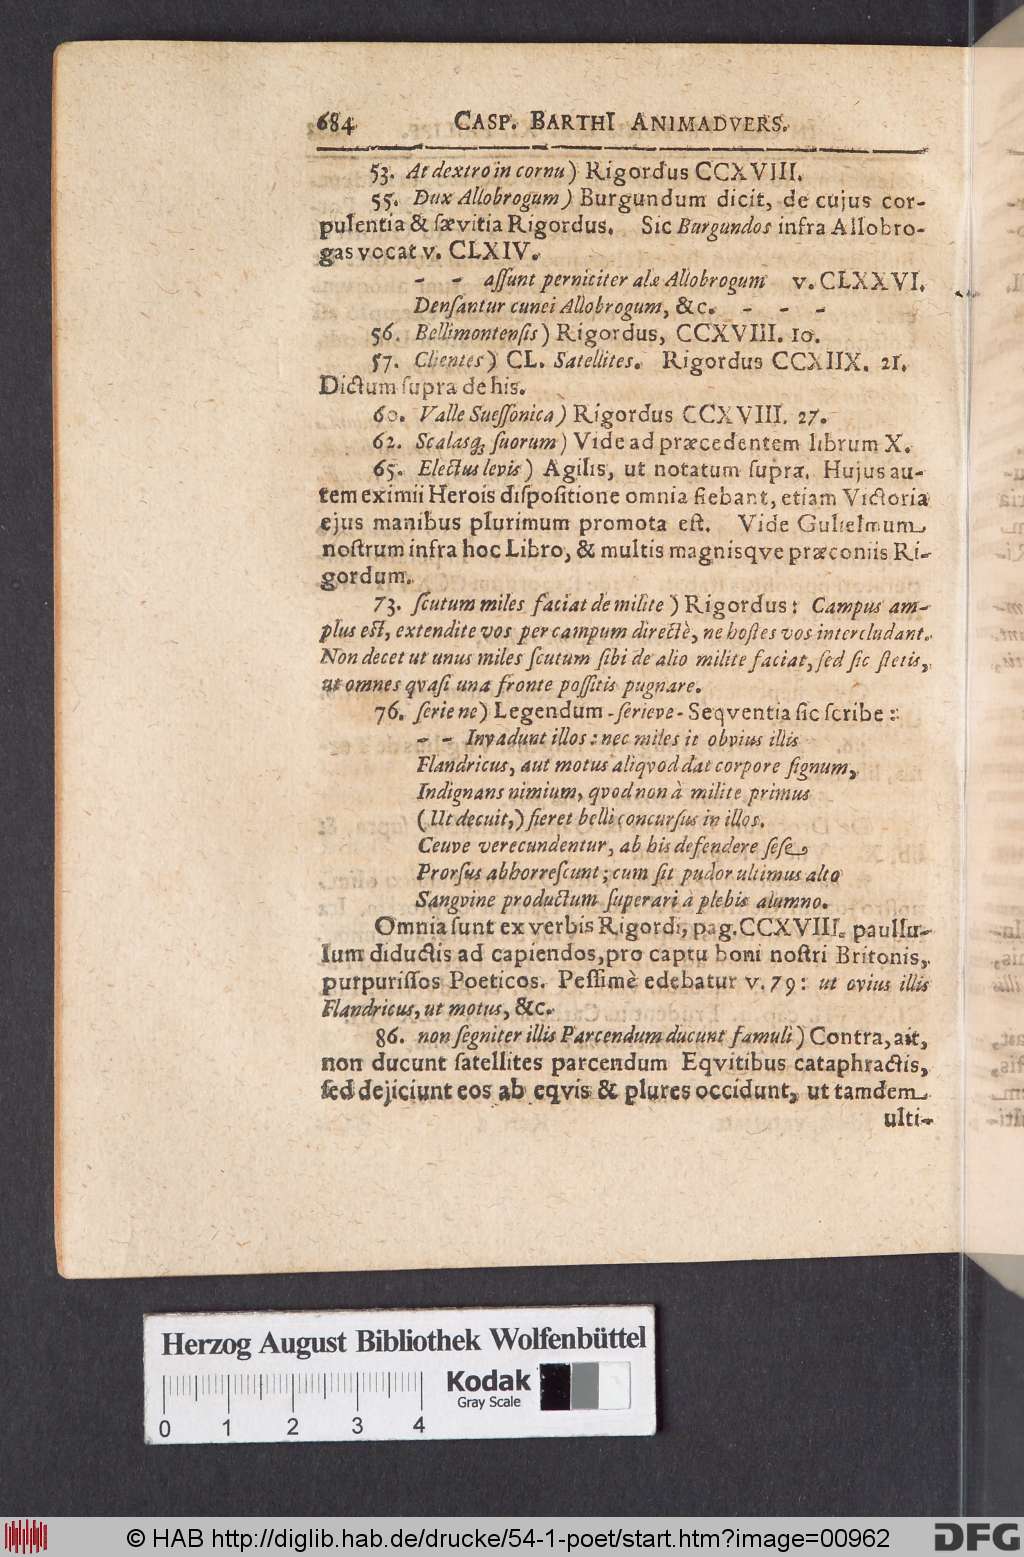 684 CASP. BARTHI ANIMADVERS.
53. At dextro in cornu) Rigordus CCXVIII.
55. Dux Allobrogum) Burgundum dicit, de cujus cor-
pulentia & sævitia Rigordus. Sic Burgundos infra Allobro-
gas vocat v. CLXIV.
- - assunt perniciter alæ Allobrogum v. CLXXVI.
Densantur cunei Allobrogum, &c. - - -
56. Bellimontensis) Rigordus, CCXVIII. 10.
57. Clientes) CL. Satellites. Rigordus CCXIIX. 21.
Dictum supra de his.
60. Valle Suessonica) Rigordus CCXVIII. 27.
62. Scalasq; suorum) Vide ad præcedentem librum X.
65. Electus levis) Agilis, ut notatum supra. Hujus au-
tem eximii Herois dispositione omnia fiebant, etiam Victoria
ejus manibus plurimum promota est. Vide Gulielmum
nostrum infra hoc Libro, & multis magnisqve præconiis Ri-
gordum.
73. scutum miles faciat de milite) Rigordus: Campus am-
plus est, extendite vos per campum directè, ne hostes vos intercludant.
Non decet ut unus miles scutum sibi de alio milite faciat, sed sic stetis,
ut omnes qvasi una fronte possitis pugnare.
76. serie ne) Legendum - serieve - Seqventia sic scribe:
- - Invadunt illos: nec miles it obvius illis
Flandricus, aut motus aliqvod dat corpore signum,
Indignans nimium, qvod non à milite primus
(Ut decuit,) fieret belli concursus in illos.
Ceuve verecundentur, ab his defendere sese
Prorsus abhorrescunt; cum sit pudor ultimus alto
Sangvine productum superari à plebis alumno.
Omnia sunt ex verbis Rigordi, pag. CCXVIII. paullu-
lum diductis ad capiendos, pro captu boni nostri Britonis,
purpurissos Poeticos. Pessimè edebatur v. 79: ut ovius illis
Flandricus, ut motus, &c.
86. non segniter illis Parcendum ducunt famuli) Contra, ait,
non ducunt satellites parcendum Eqvitibus cataphractis,
sed dejiciunt eos ab eqvis & plures occidunt, ut tamdem
ulti-
Herzog August Bibliothek Wolfenbüttel
Kodak
Gray Scale
0 1 2 3 4
© HAB http://diglib.hab.de/drucke/54-1-poet/start.htm?image=00962
DFG